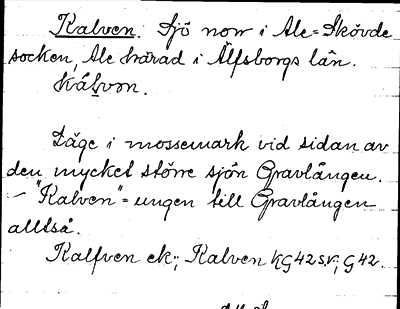 Kalven. Sjö norr i Ale-Skövde
socken, Ale härad i Älfsborgs län.
kálvon.
Läge i mossemark vid sidan av
den mycket större sjön Gravlången.
– "Kalven" = ungen till Gravlången
alltså.
Kalfven ek.; Kalven KG 42 s.v.; G 42.